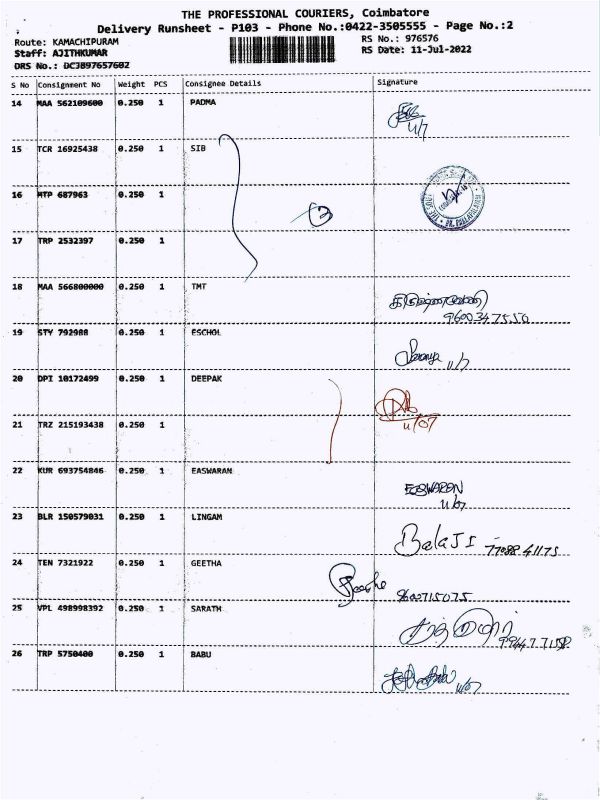 THE PROFESSIONAL COURIERS, Coimbatore
Delivery Runsheet - P103 - Phone No.:0422-3505555 - Page No.:2
Route: KAMACHIPURAM
RS No.: 976576
Staff: AJITHKUMAR
RS Date: 11-Jul-2022
DRS No.: DCJB97657602
S No Consignment No Weight PCS Consignee Details Signature
14 MAA 562109600 0.250 1 PADMA
11/7
15 TCR 16925438 0.250 1 SIB
16 MTP 687963 0.250 1
3
17 TRP 2532397 0.250 1
18 MAA 566800000 0.250 1 TMT
9600347550
19 STY 792988 0.250 1 ESCHOL
Saranya 11/7
20 DPI 10172499 0.250 1 DEEPAK
11/07
21 TRZ 215193438 0.250 1
22 KUR 693754846 0.250 1 EASWARAN
ESWARAN
11/07
23 BLR 150579031 0.250 1 LINGAM
BalaJI 77088 41175
24 TEN 7321922 0.250 1 GEETHA
Geetha 9600715075
25 VPL 498998392 0.250 1 SARATH
26 TRP 5750400 0.250 1 BABU
11/07